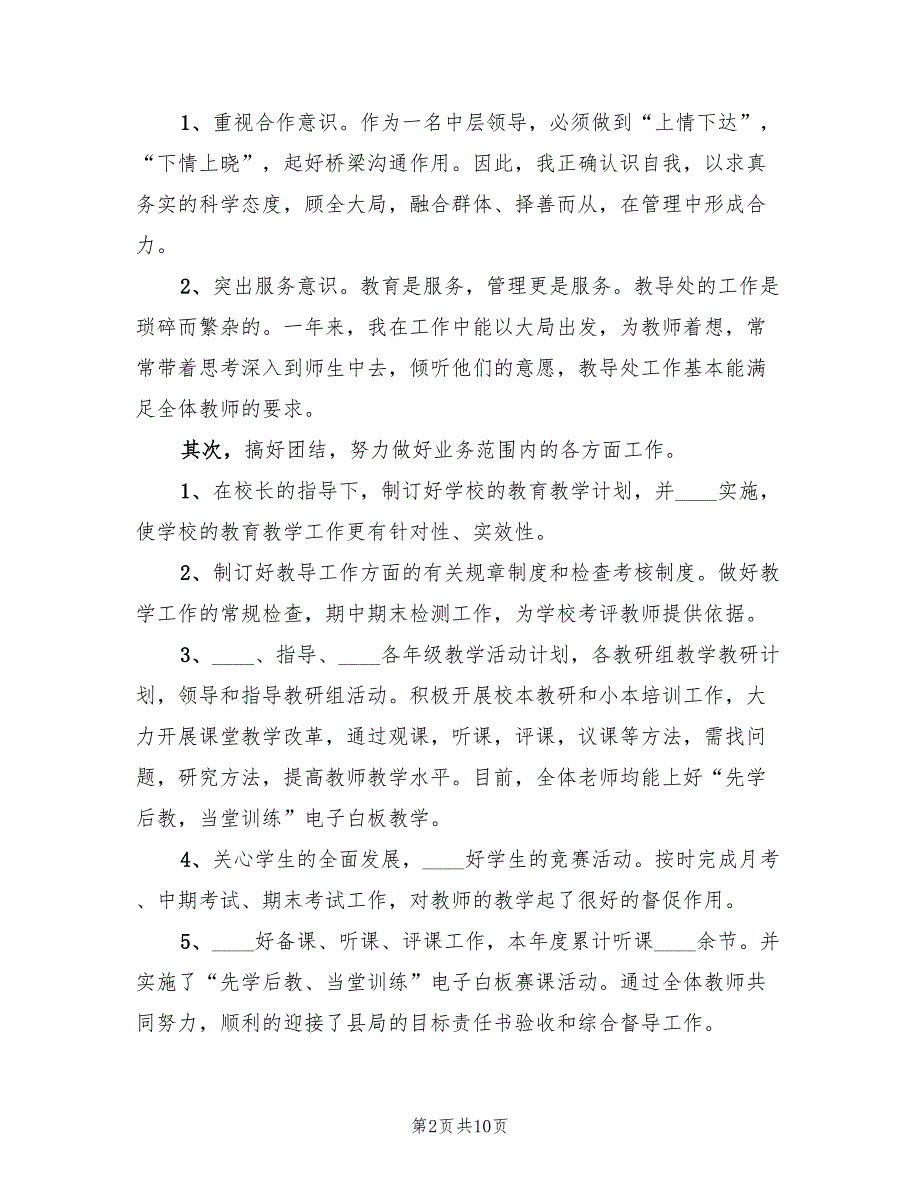 1、重视合作意识。作为一名中层领导，必须做到“上情下达”，
“下情上晓”，起好桥梁沟通作用。因此，我正确认识自我，以求真
务实的科学态度，顾全大局，融合群体、择善而从，在管理中形成合
力。
2、突出服务意识。教育是服务，管理更是服务。教导处的工作是
琐碎而繁杂的。一年来，我在工作中能以大局出发，为教师着想，常
常带着思考深入到师生中去，倾听他们的意愿，教导处工作基本能满
足全体教师的要求。
其次，搞好团结，努力做好业务范围内的各方面工作。
1、在校长的指导下，制订好学校的教育教学计划，并____实施，
使学校的教育教学工作更有针对性、实效性。
2、制订好教导工作方面的有关规章制度和检查考核制度。做好教
学工作的常规检查，期中期末检测工作，为学校考评教师提供依据。
3、____、指导、____各年级教学活动计划，各教研组教学教研计
划，领导和指导教研组活动。积极开展校本教研和小本培训工作，大
力开展课堂教学改革，通过观课，听课，评课，议课等方法，需找问
题，研究方法，提高教师教学水平。目前，全体老师均能上好“先学
后教，当堂训练”电子白板教学。
4、关心学生的全面发展，____好学生的竞赛活动。按时完成月考
、中期考试、期末考试工作，对教师的教学起了很好的督促作用。
5、____好备课、听课、评课工作，本年度累计听课____余节。并
实施了“先学后教、当堂训练”电子白板赛课活动。通过全体教师共
同努力，顺利的迎接了县局的目标责任书验收和综合督导工作。
第2页共10页